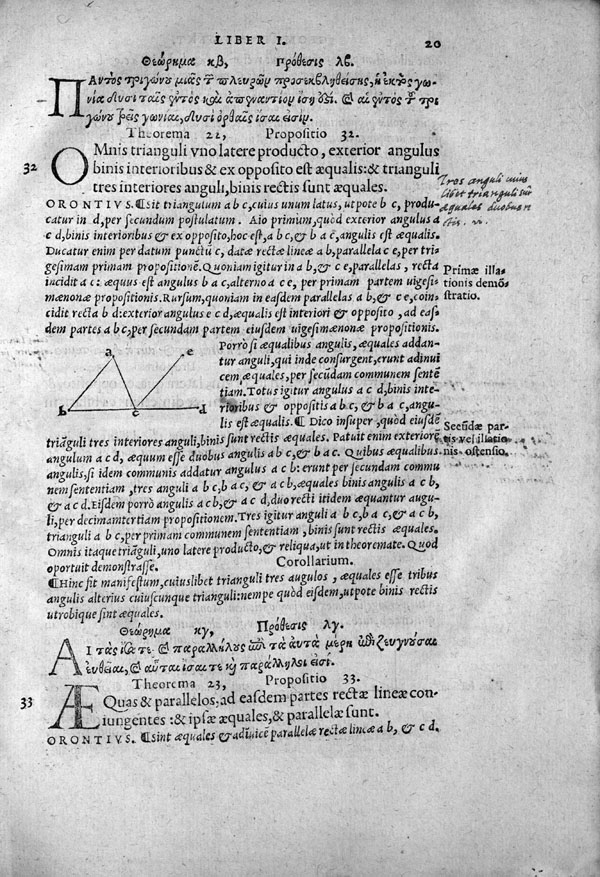 LIBER I.
20
Θεώρημα κβ, Πρόθεσις λβ.
ΠΑντὸς τριγώνου μιᾶς τ πλευρῶν προσεκβληθείσης, ἡ ἐκτὸς γω-
νία δυσὶ ταῖς ἐντὸς καὶ ἀπεναντίον ἴση ἐστί. καὶ αἱ ἐντὸς τ τρι
γώνου τρεῖς γωνίαι, δυσὶν ὀρθαῖς ἴσαι εἰσίν.
Theorema 22, Propositio 32.
32
OMnis trianguli vno latere producto, exterior angulus
binis interioribus & ex opposito est æqualis: & trianguli
tres interiores anguli, binis rectis sunt æquales.
Tres anguli cuius
libet trianguli sūt
æquales duobus re
ctis.
ORONTIVS. ¶Sit triangulum a b c, cuius unum latus, ut pote b c, produ-
catur in d, per secundum postulatum. Aio primùm, quòd exterior angulus a
c d, binis interioribus & ex opposito, hoc est, a b c, & b a c, angulis est æqualis.
Ducatur enim per datum punctū c, datæ rectæ lineæ a b, parallela c e, per tri-
gesimam primam propositionē. Quoniam igitur in a b, & c e, parallelas, recta
incidit a c: æquus est angulus b a c, alterno a c e, per primam partem uigesi-
mænonæ propositionis. Rursum, quoniam in easdem parallelas a b, & c e, coin-
cidit recta b d: exterior angulus e c d, æqualis est interiori & opposito, ad eas-
dem partes a b c, per secundam partem eiusdem uigesimænonæ propositionis.
Primæ illa-
tionis demō-
stratio.
a e
b c d
Porrò si æqualibus angulis, æquales addan-
tur anguli, qui inde consurgent, erunt adinui
cem æquales, per secūdam communem sentē
tiam. Totus igitur angulus a c d, binis inte-
rioribus & oppositis a b c, & b a c, angu-
lis est æqualis. ¶ Dico insuper, quòd eiusdē
triāguli tres interiores anguli, binis sunt rectis æquales. Patuit enim exteriorē
angulum a c d, æquum esse duobus angulis a b c, & b a c. Quibus æqualibus
angulis, si idem communis addatur angulus a c b: erunt per secundam commu
nem sententiam, tres anguli a b c, b a c, & a c b, æquales binis angulis a c b,
& a c d. Eisdem porrò angulis a c b, & a c d, duo recti itidem æquantur angu-
li, per decimamtertiam propositionem. Tres igitur anguli a b c, b a c, & a c b,
trianguli a b c, per primam communem sententiam, binis sunt rectis æquales.
Omnis itaque triāguli, uno latere producto, & reliqua, ut in theoremate. Quod
oportuit demonstrasse.
Secūdæ par-
tis vel illatio
nis ostensio.
Corollarium.
¶Hinc fit manifestum, cuiuslibet trianguli tres augulos, æquales esse tribus
angulis alterius cuiuscunque trianguli: nempe quòd eisdem, utpote binis rectis
utrobique sint æquales.
Θεώρημα κγ, Πρόθεσις λγ.
Αἱ τὰς ἴσας τε καὶ παραλλήλους ἐπὶ τὰ αὐτὰ μέρη ἐπιζευγνῦσαι
εὐθεῖαι, καὶ αὗται ἴσαι τε καὶ παράλληλοί εἰσι.
Theorema 23, Propositio 33.
33
ÆQuas & parallelos, ad easdem partes rectæ lineæ con-
iungentes: & ipsæ æquales, & parallelæ sunt.
ORONTIVS. ¶Sint æquales & adīuicē parallelæ rectæ lineæ a b, & c d.